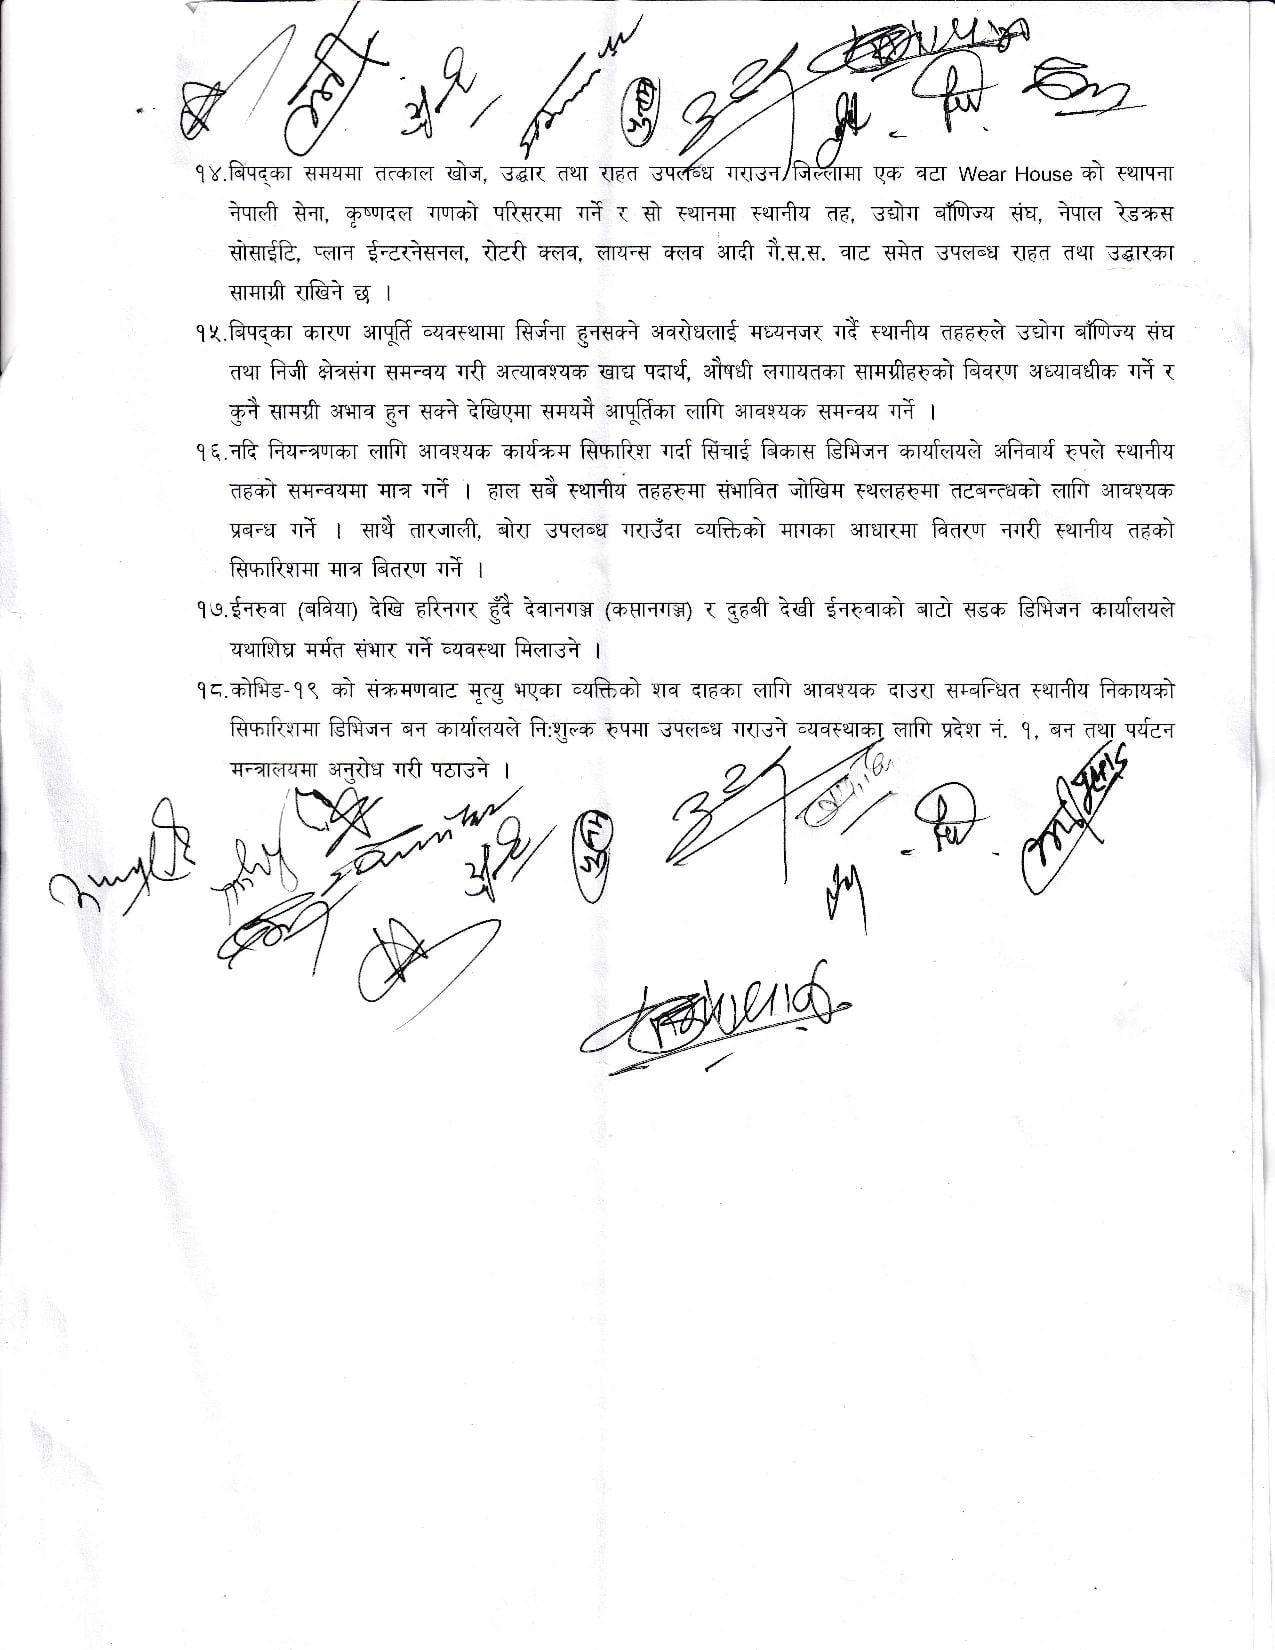 १४.बिपद्का समयमा तत्काल खोज, उद्धार तथा राहत उपलब्ध गराउन जिल्लामा एक वटा Wear House को स्थापना
नेपाली सेना, कृष्णदल गणको परिसरमा गर्ने र सो स्थानमा स्थानीय तह, उद्योग बाँणिज्य संघ, नेपाल रेडक्रस
सोसाईटि, प्लान ईन्टरनेसनल, रोटरी क्लव, लायन्स क्लव आदी गै.स.स. वाट समेत उपलब्ध राहत तथा उद्धारका
सामाग्री राखिने छ ।
१५.बिपद्का कारण आपूर्ति व्यवस्थामा सिर्जना हुनसक्ने अवरोधलाई मध्यनजर गर्दै स्थानीय तहहरुले उद्योग बाँणिज्य संघ
तथा निजी क्षेत्रसंग समन्वय गरी अत्यावश्यक खाद्य पदार्थ, औषधी लगायतका सामग्रीहरुको बिवरण अध्यावधीक गर्ने र
कुनै सामग्री अभाव हुन सक्ने देखिएमा समयमै आपूर्तिका लागि आवश्यक समन्वय गर्ने ।
१६.नदि नियन्त्रणका लागि आवश्यक कार्यक्रम सिफारिश गर्दा सिंचाई बिकास डिभिजन कार्यालयले अनिवार्य रुपले स्थानीय
तहको समन्वयमा मात्र गर्ने । हाल सबै स्थानीय तहहरुमा संभावित जोखिम स्थलहरुमा तटबन्त्धको लागि आवश्यक
प्रबन्ध गर्ने । साथै तारजाली, बोरा उपलब्ध गराउँदा व्यक्तिको मागका आधारमा वितरण नगरी स्थानीय तहको
सिफारिशमा मात्र बितरण गर्ने ।
१७.ईनरुवा (बविया) देखि हरिनगर हुँदै देवानगञ्ज (कप्तानगञ्ज) र दुहबी देखी ईनरुवाको बाटो सडक डिभिजन कार्यालयले
यथाशिघ्र मर्मत संभार गर्ने व्यवस्था मिलाउने ।
१८.कोभिड-१९ को संक्रमणवाट मृत्यु भएका व्यक्तिको शव दाहका लागि आवश्यक दाउरा सम्बन्धित स्थानीय निकायको
सिफारिशमा डिभिजन बन कार्यालयले नि:शुल्क रुपमा उपलब्ध गराउने व्यवस्थाका लागि प्रदेश नं. १, बन तथा पर्यटन
मन्त्रालयमा अनुरोध गरी पठाउने ।